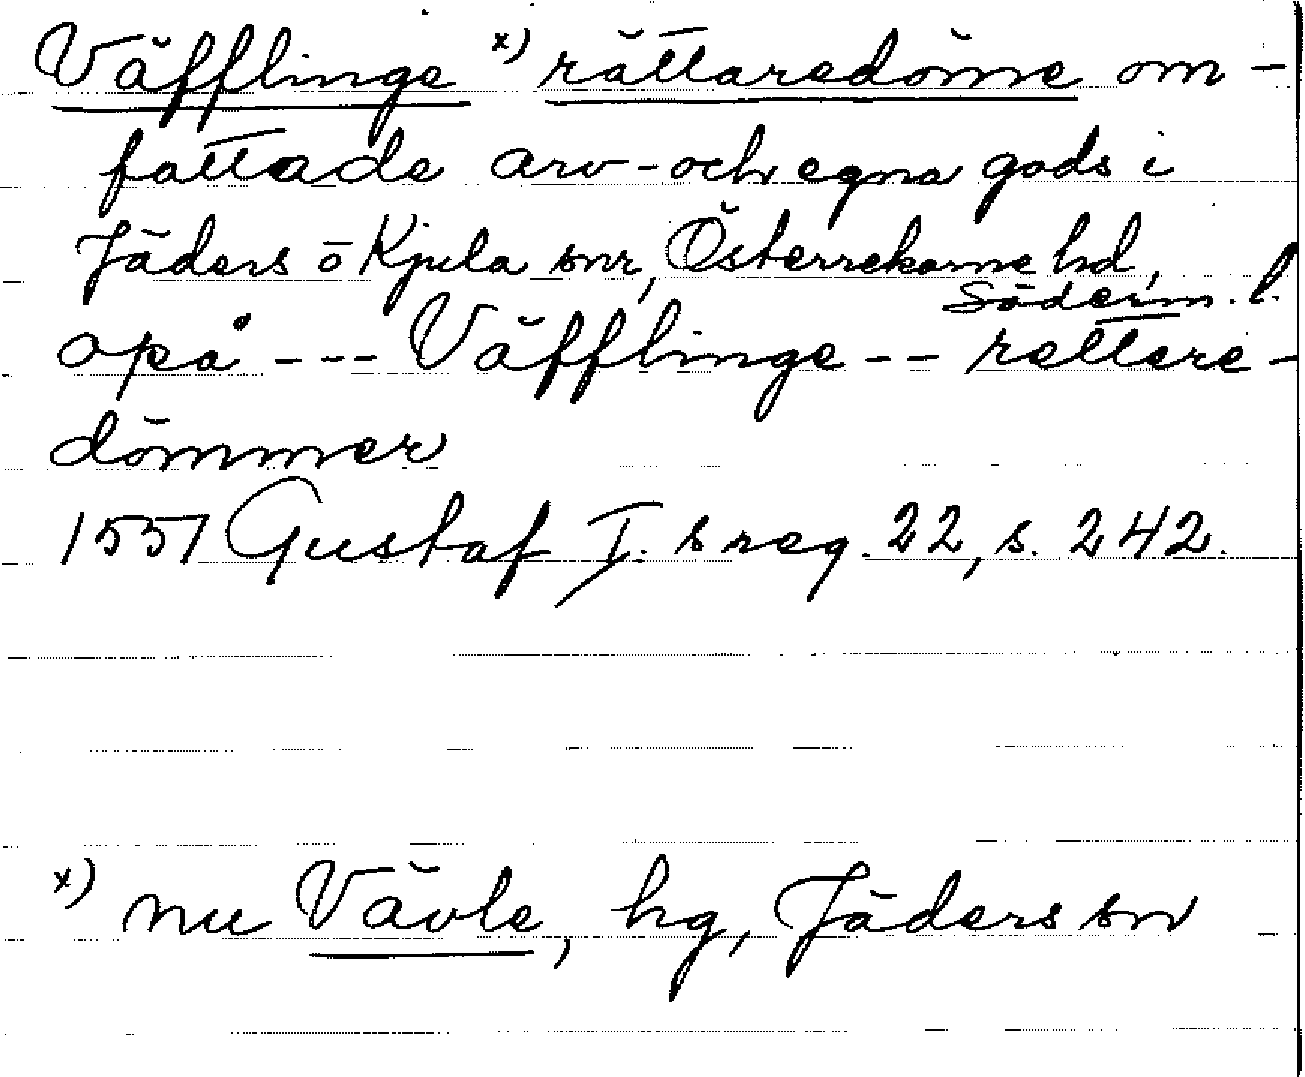 Väfflinge x) rättaredöme om-
fattade arv- och egna gods i
Jäders o Kjula snr, Österrekarne hd,
Söderm. l.
opå --- Väfflinge -- rettere-
dömmer
1557 Gustaf I.s reg. 22, s. 242.
x) nu Vävle, hg, Jäders sn